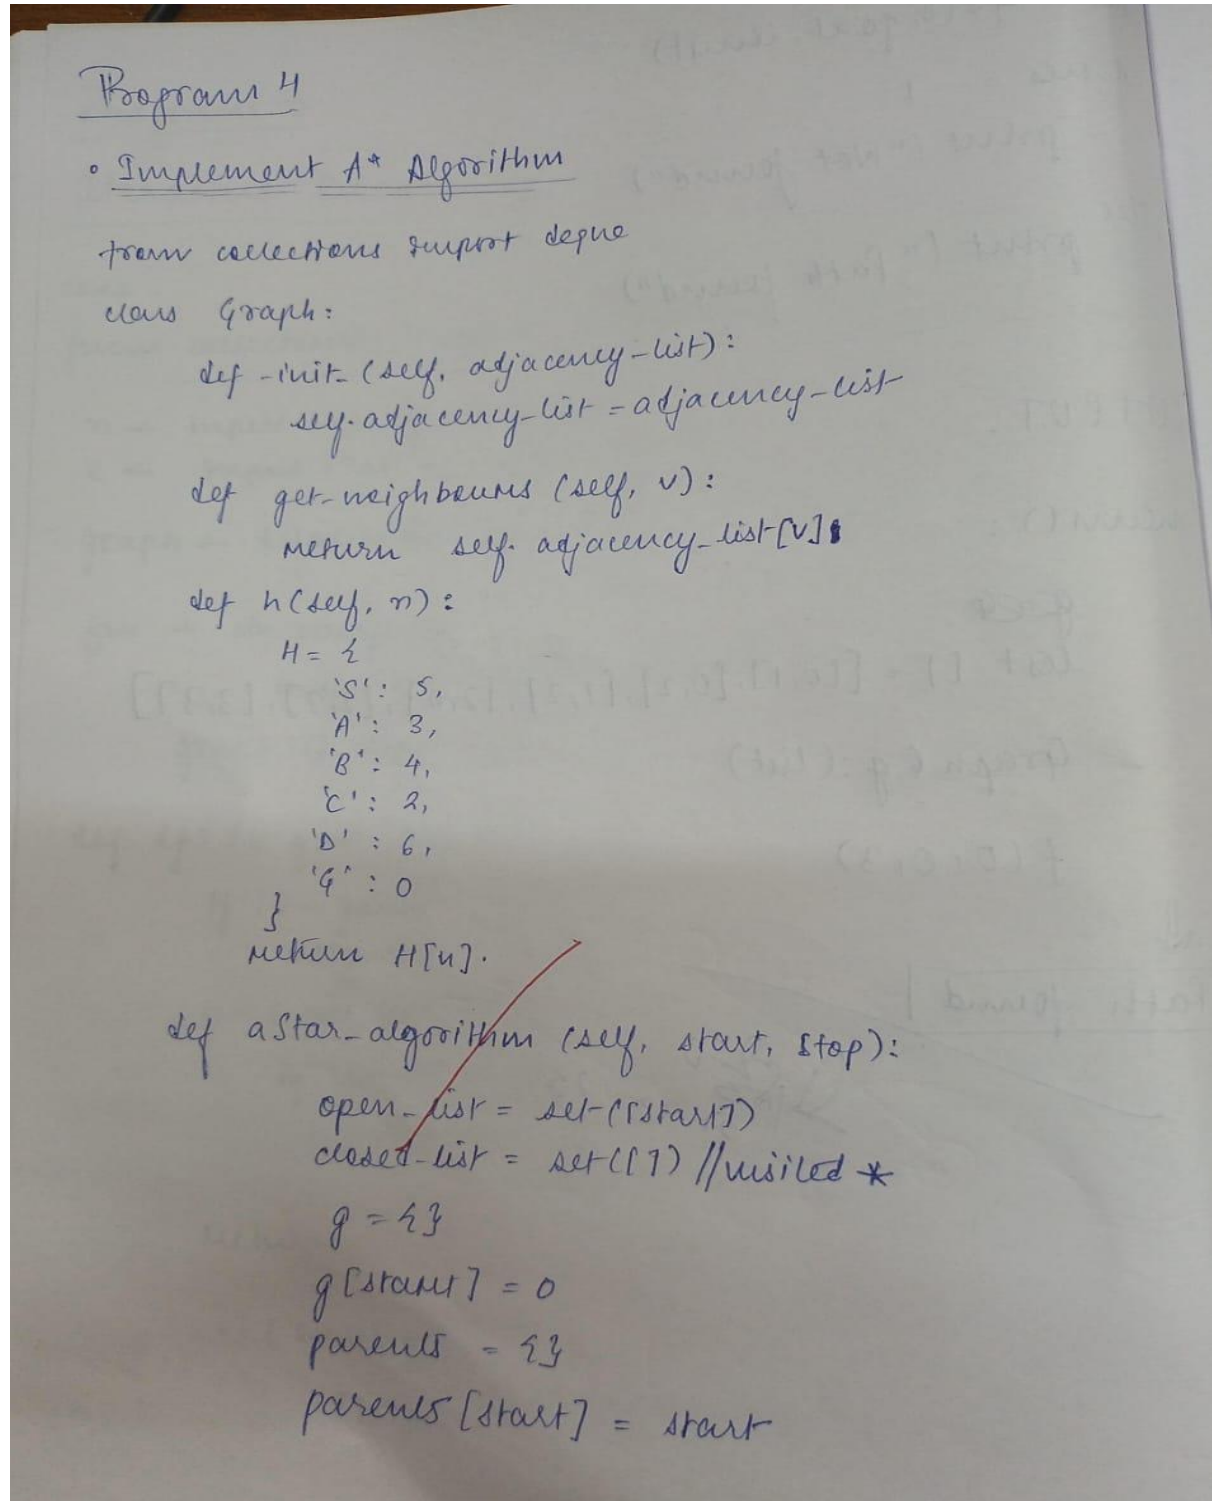 Program 4
• Implement A* Algorithm
from collections import deque
class Graph:
def _init_ (self, adjacency_list):
self.adjacency_list = adjacency_list
def get_neighbours (self, v):
return self.adjacency_list[v]
def h(self, n):
H = {
'S' : 5,
'A' : 3,
'B' : 4,
'C' : 2,
'D' : 6,
'G' : 0
}
return H[n].
def aStar_algorithm (self, start, stop):
open_list = set([start])
closed_list = set([]) //visited *
g = {}
g[start] = 0
parents = {}
parents[start] = start